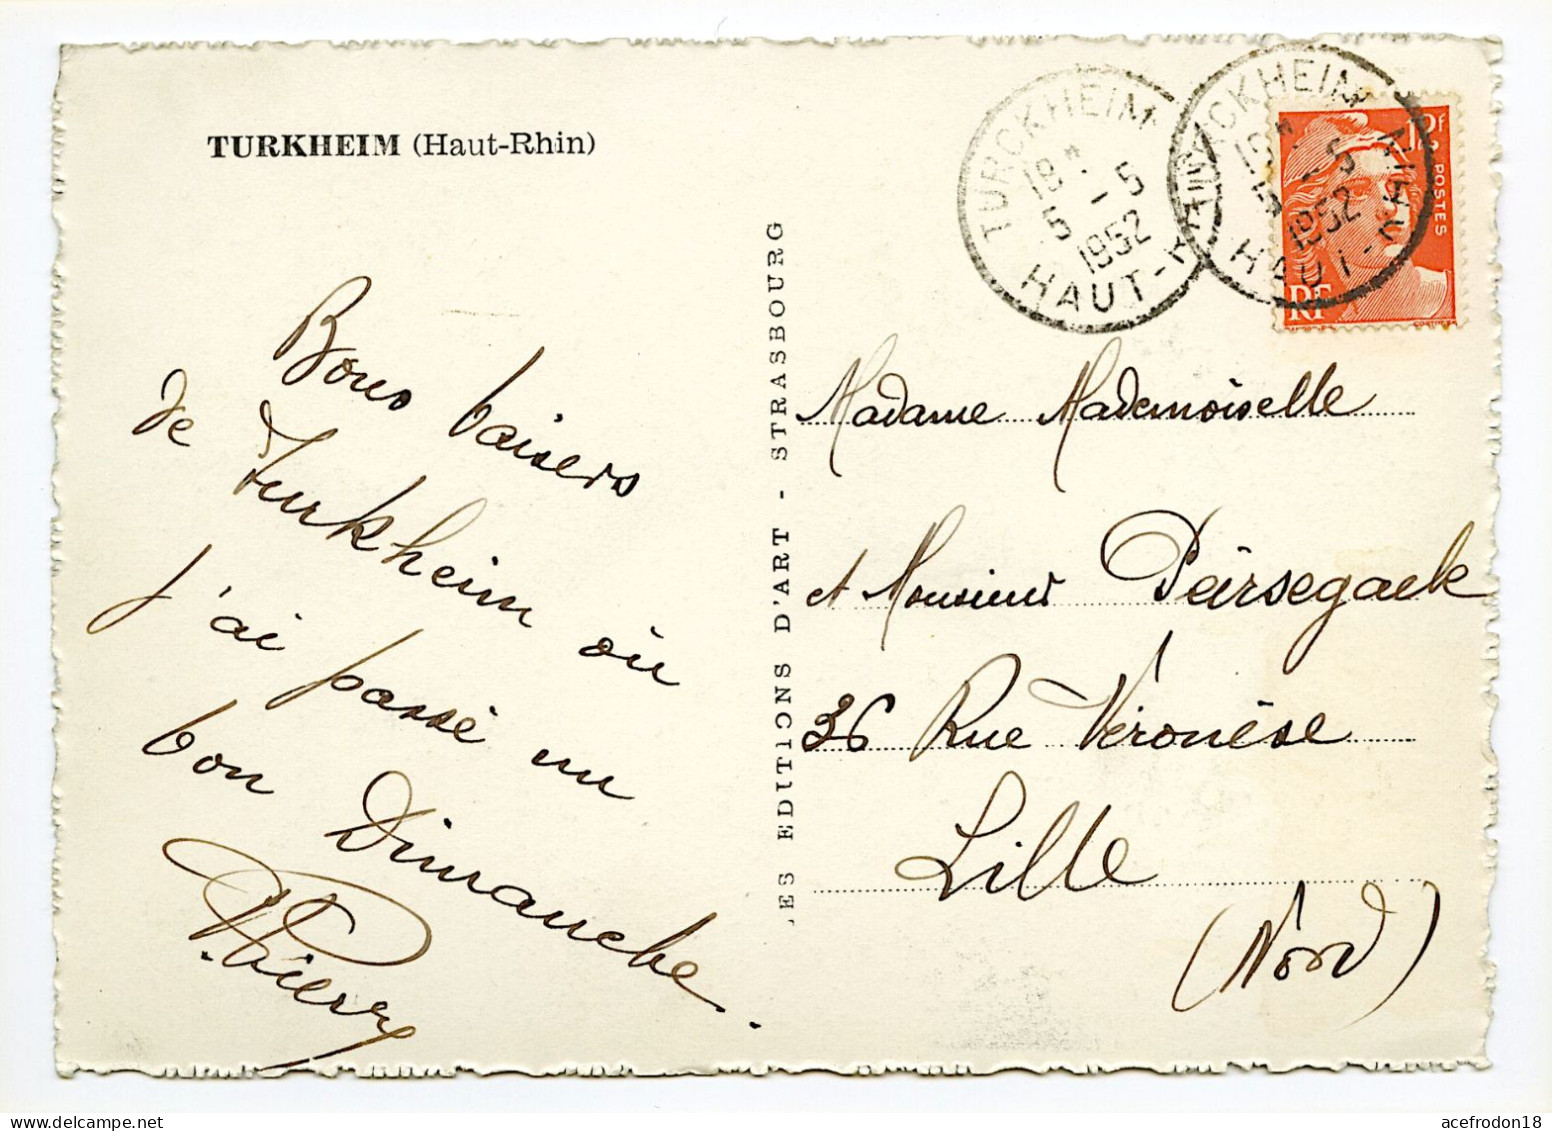 TURKHEIM (Haut-Rhin)
Bons baisers
de Turkheim où
j'ai passé un
bon Dimanche.
Thierry
ES EDITIONS D'ART - STRASBOURG
TURCKHEIM
18H
5 - 5
1952
HAUT-RHIN
TURCKHEIM
18H
5 - 5
1952
HAUT-RHIN
12F
POSTES
RF
Madame Mademoiselle
et Monsieur Peirsegaele
36 Rue Véronèse
Lille
(Nord)
acefrodon18